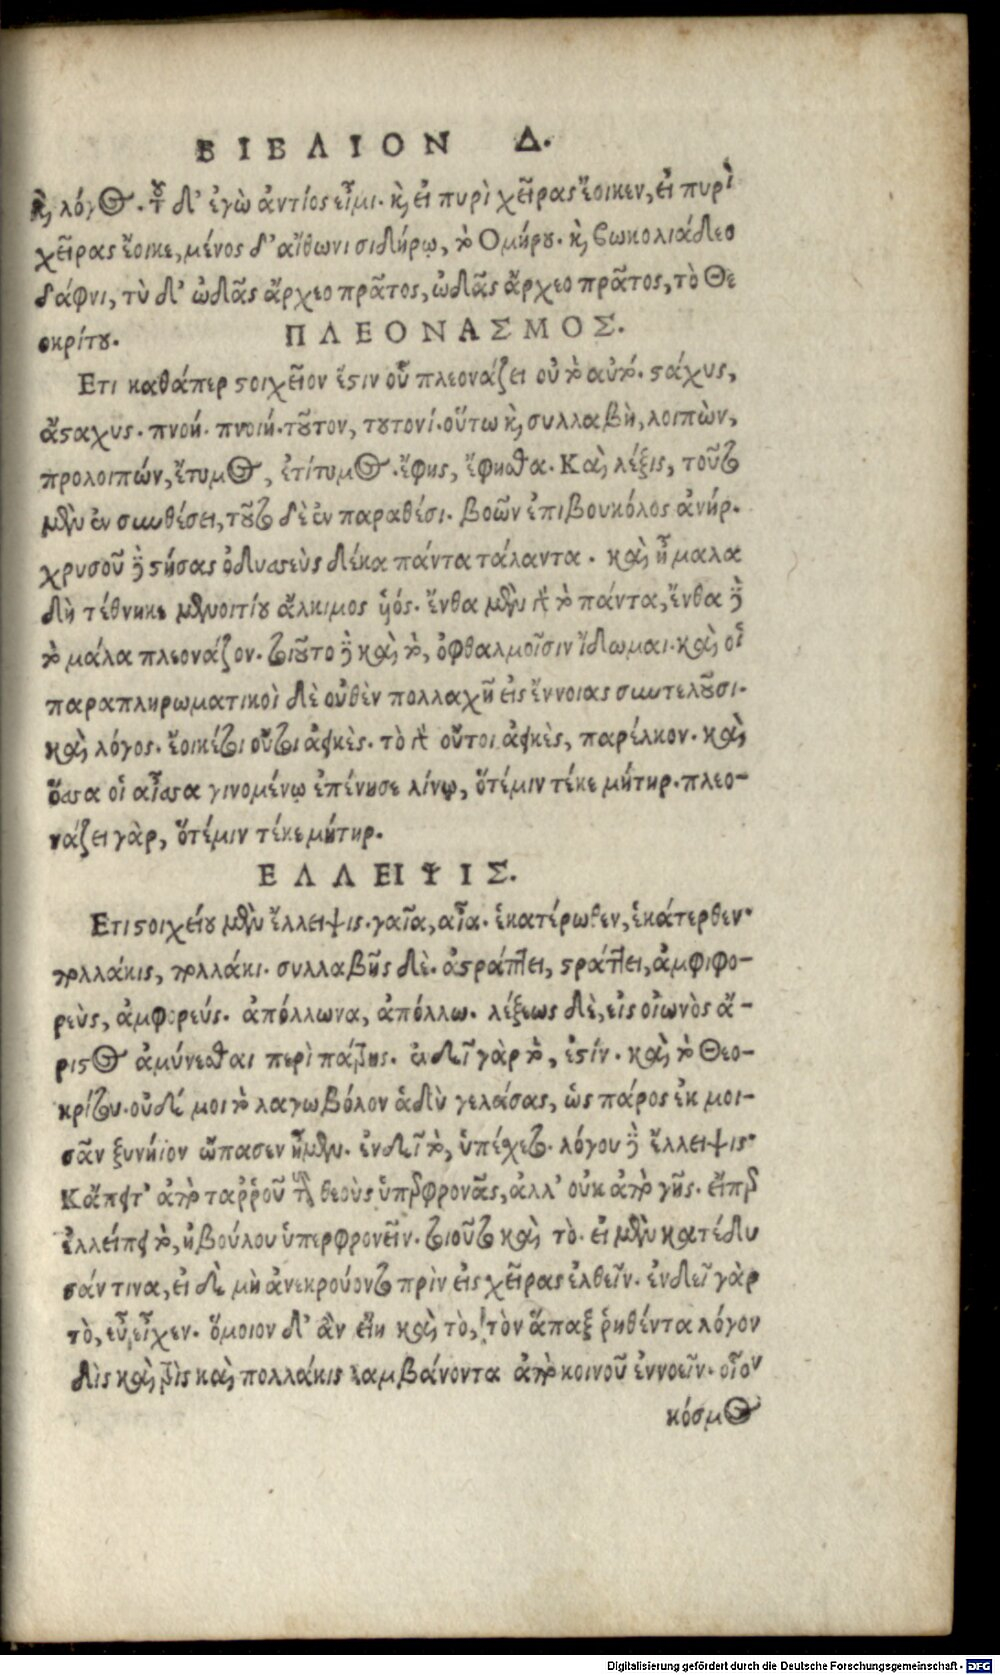 ΒΙΒΛΙΟΝ Δ.
καὶ λόγος. τοῦ δ' ἐγὼ ἀντίος εἶμι. καὶ εἰ πυρὶ χεῖρας ἔοικεν, εἰ πυρὶ
χεῖρας ἔοικε, μένος δ' αἴθωνι σιδήρῳ, τὸ Ομήρου. καὶ βωκολιάδεο
δάφνι, τὺ δ' ὠδᾶς ἄρχεο πρᾶτος, ὠδᾶς ἄρχεο πρᾶτος, τὸ Θε
οκρίτου. ΠΛΕΟΝΑΣΜΟΣ.
Ετι καθάπερ στοιχεῖον ἔστιν οὗ πλεονάζει οὐ τὸ αὐτό. στάχυς,
ἄσταχυς. πνοή. πνοιή. τοῦτον, τουτονί. οὕτω καὶ συλλαβὴ, λοιπὼν,
προλοιπών, ἔτυμος, ἐτίτυμος. ἔφης, ἔφησθα. Καὶ λέξις, τοῦτο
μὲν ἐν συνθέσει, τοῦτο δὲ ἐν παραθέσι. βοῶν ἐπιβουκόλος ἀνήρ.
χρυσοῦ δὲ στήσας ὀδυσσεὺς δέκα πάντα τάλαντα. καὶ ἦ μαλα
δὴ τέθνηκε μενοιτίου ἄλκιμος υἱός. ἔνθα μὲν γὰρ τὸ πάντα, ἔνθα δὲ
τὸ μάλα πλεονάζον. τοιοῦτο δὲ καὶ τὸ, ὀφθαλμοῖσιν ἴδωμαι. καὶ οἱ
παραπληρωματικοὶ δὲ οὐθὲν πολλαχῆ εἰς ἔννοιας συντελοῦσι.
καὶ λόγος. ἔοικέ τοι οὔτοι ἀεικὲς. τὸ γὰρ οὔτοι ἀεικὲς, παρέλκον. καὶ
ὅσσα οἱ αἶσσα γινομένῳ ἐπένησε λίνῳ, ὅτέμιν τέκε μήτηρ. πλεο-
νάζει γὰρ, ὅτέμιν τέκε μήτηρ.
ΕΛΛΕΙΨΙΣ.
Ετι στοιχείου μὲν ἔλλειψις. γαῖα, αἶα. ἑκατέρωθεν, ἑκάτερθεν·
πολλάκις, πολλάκι. συλλαβῆς δὲ. ἀστράπτει, στράπτει, ἀμφιφο-
ρεὺς, ἀμφορεύς. ἀπόλλωνα, ἀπόλλω. λέξεως δὲ, εἷς οἰωνὸς ἄ-
ριστος ἀμύνεσθαι περὶ πάτρης. ἐνδεῖ γὰρ τὸ, ἐστίν. καὶ τὸ Θεο-
κρίτου. οὐδέ μοι τὸ λαγωβόλον ἁδὺ γελάσας, ὡς πάρος ἐκ μοι-
σᾶν ξυνήϊον ὤπασεν ἦμεν. ἐνδεῖ τὸ, ὑπέχετο. λόγου δὲ ἔλλειψις·
Κἄπειτ' ἀπὸ ταρροῦ τοὺς θεοὺς ὑπερφρονᾶς, ἀλλ' οὐκ ἀπὸ γῆς. εἴπερ
ἐλλείπει τὸ, ἠβούλου ὑπερφρονεῖν. τοιοῦτο καὶ τὸ. εἰ μὲν κατέδυ
σάν τινα, εἰ δὲ μὴ ἀνεκρούοντο πρὶν εἰς χεῖρας ἐλθεῖν. ἐνδεῖ γὰρ
τὸ, εὖ εἶχεν. ὅμοιον δ' ἂν εἴη καὶ τὸ, τὸν ἅπαξ ῥηθέντα λόγον
δὶς καὶ τρὶς καὶ πολλάκις λαμβάνοντα ἀπὸ κοινοῦ ἐννοεῖν. οἷον
κόσμος
Digitalisierung gefördert durch die Deutsche Forschungsgemeinschaft - DFG